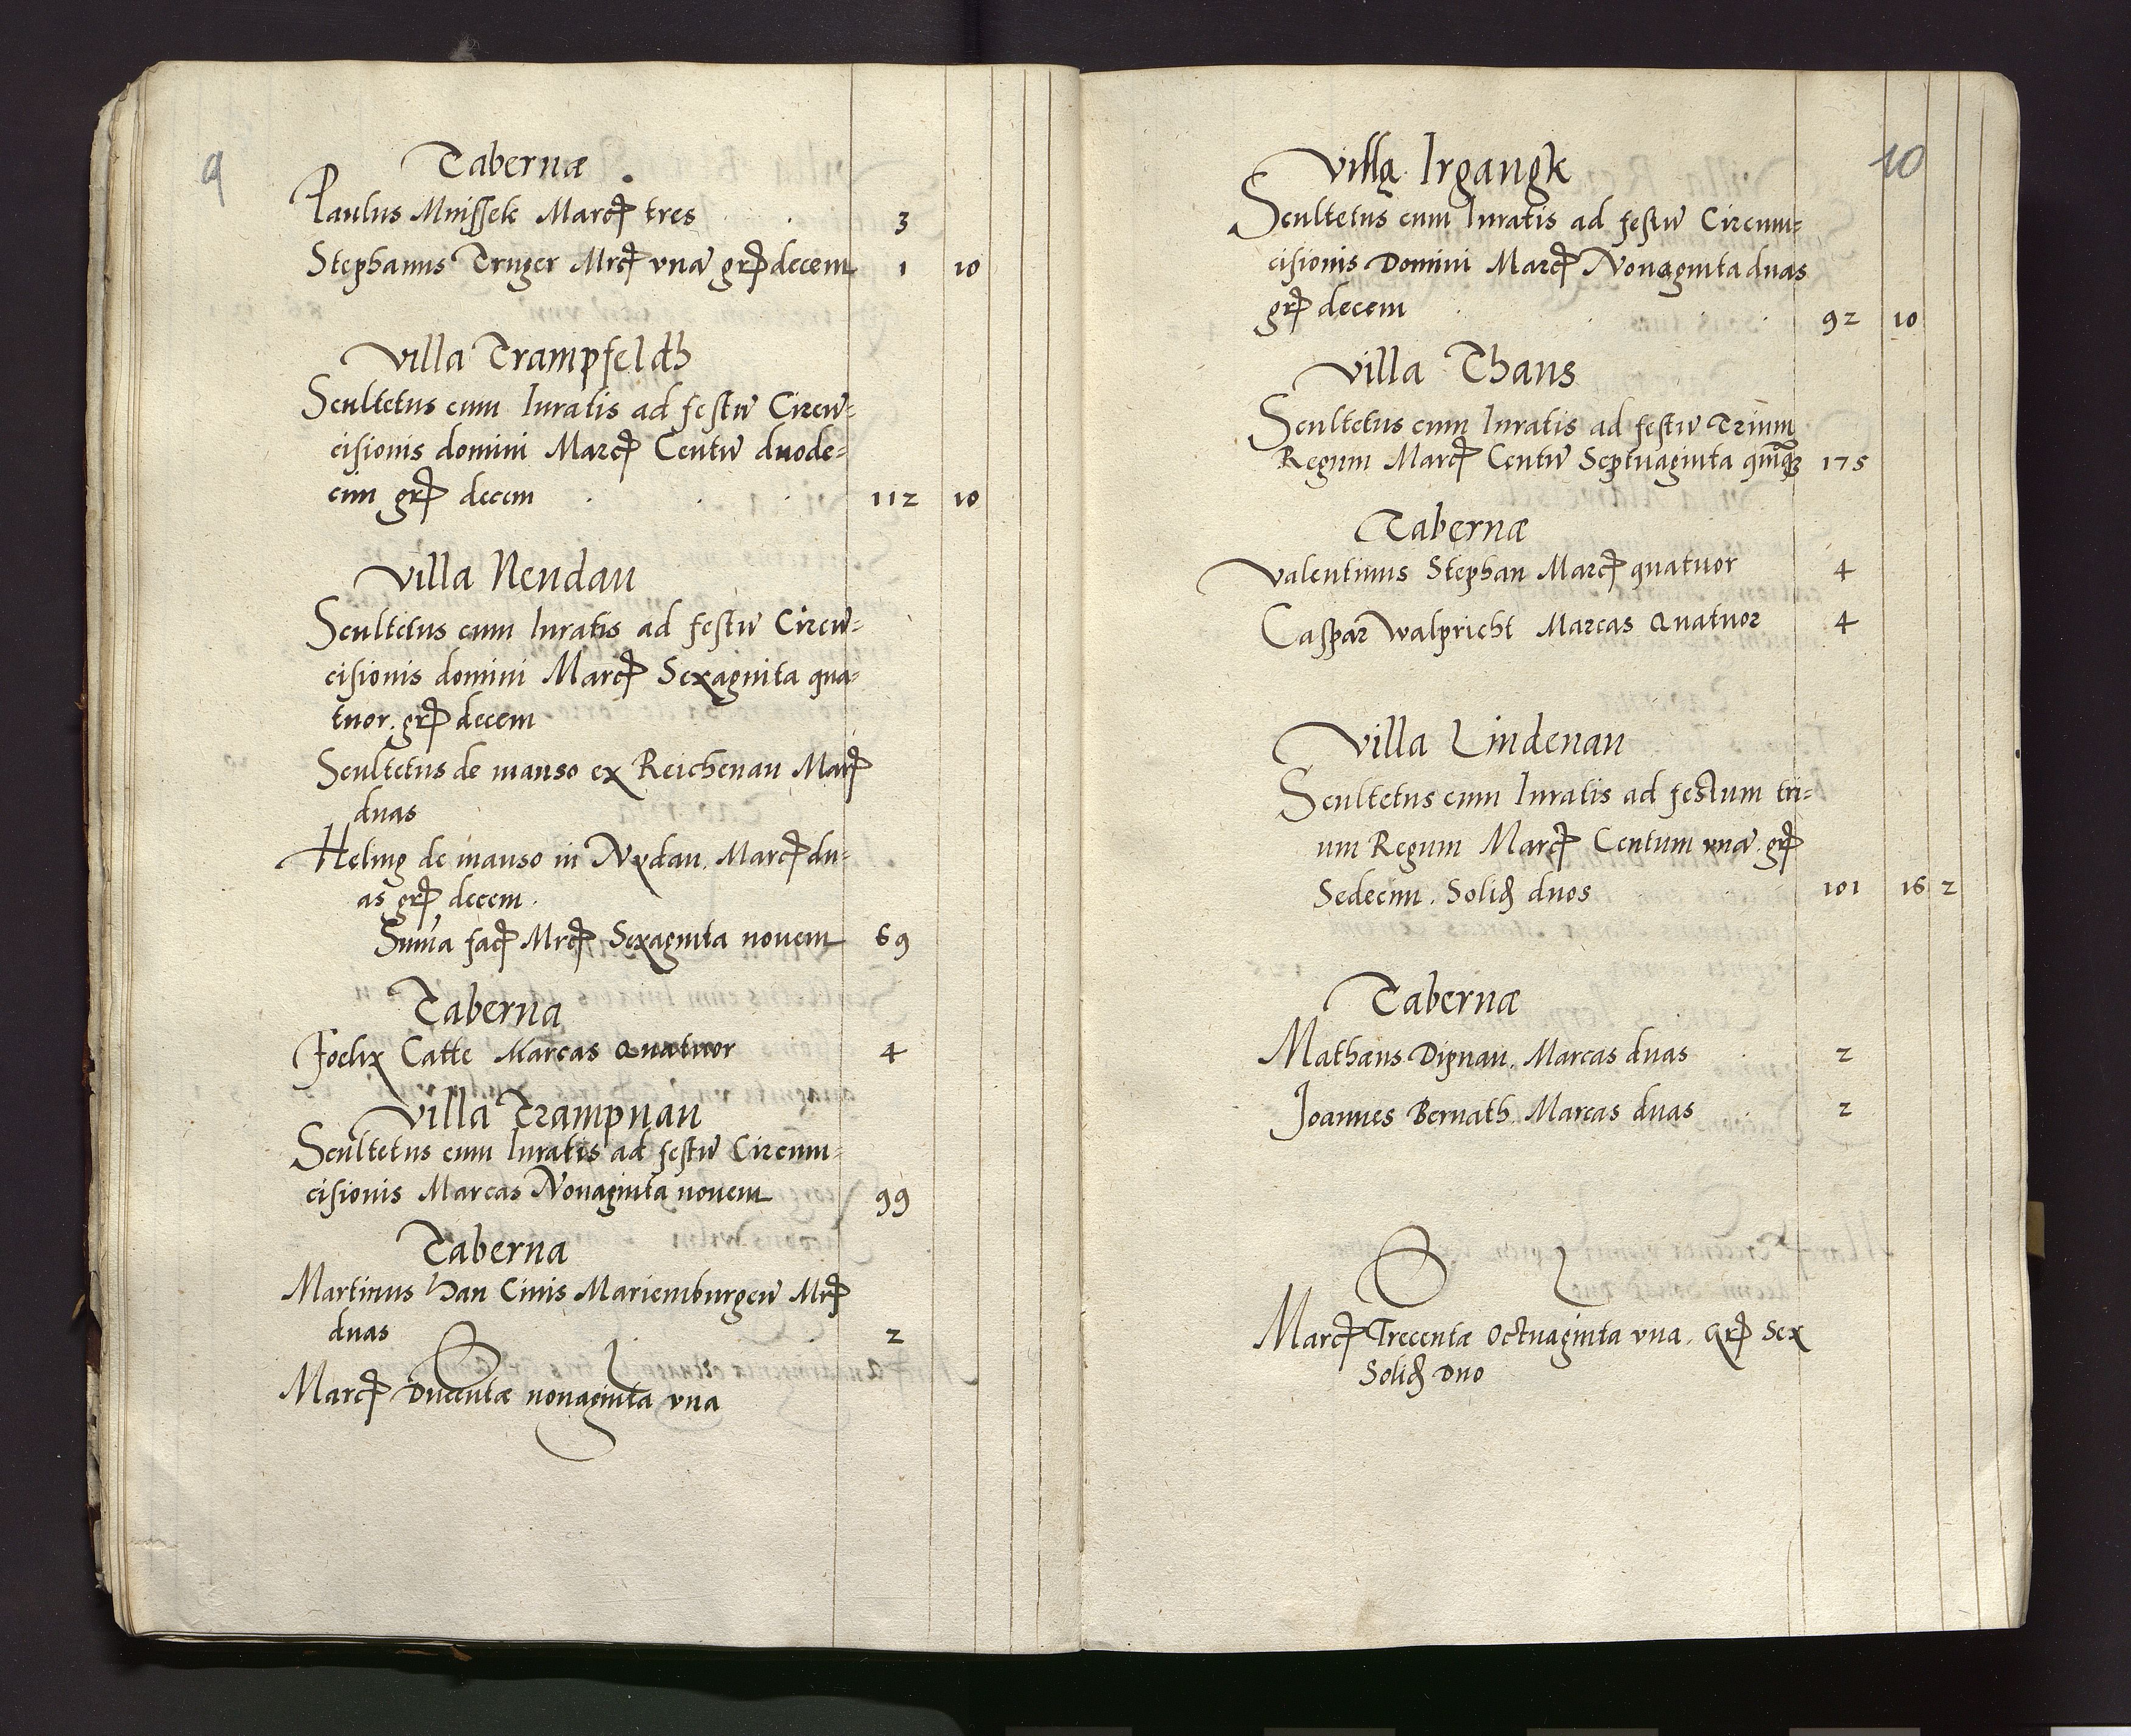 9
Tabernæ
Paulus Mnissek Marc tres 3
Stephanus Truger Mrc vnā gr decem 1 10
Villa Trampfeldh
Scultetus cum Iuratis ad festū Circū=
cisionis domini Marc Centū duode=
cim gr decem 112 10
Villa Neudau
Scultetus cum Iuratis ad festū Circū=
cisionis domini Marc Sexaginta qua=
tuor. gr decem
Scultetus de manso ex Reichenau Mar
duas
Heling de manso in Nydau. Marc du=
as gr decem.
Sum̄a fac Mrc Sexaginta nouem 69
Taberna
Foelix Catte Marcas Quatuor 4
Villa Trampnau
Scultetus cum Iuratis ad festū Circum=
cisionis Marcas Nonaginta nouem 99
Taberna
Martinus Han Ciuis Mariemburgen̄ Mr
duas 2
Marc Ducentæ nonaginta vna
10
Villa Irgangk
Scultetus cum Iuratis ad festū Circum=
cisionis Domini Marc Nonaginta duas
gr decem 92 10
Villa Thans
Scultetus cum Iuratis ad festū Trium
Regum Marc Centū Septuaginta quinq 175
Tabernæ
Valentinus Stephan Marc quatuor 4
Caspar Walpricht Marcas Quatuor 4
Villa Lindenau
Scultetus cum Iuratis ad festum tri=
um Regum Marc Centum vnā. gr
Sedecim. Solid duos 101 16 2
Tabernæ
Mathæus Dignau. Marcas duas 2
Joannes Bernath. Marcas duas 2
Marc Trecentæ Octuaginta vna. Gr Sex
Solid Duo